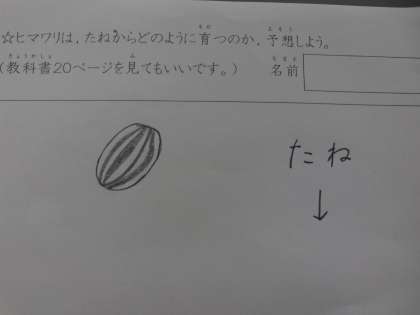 ☆ヒマワリは，たねからどのように育つのか，予想しよう。
（教科書20ページを見てもいいです。）　名前
たね
↓